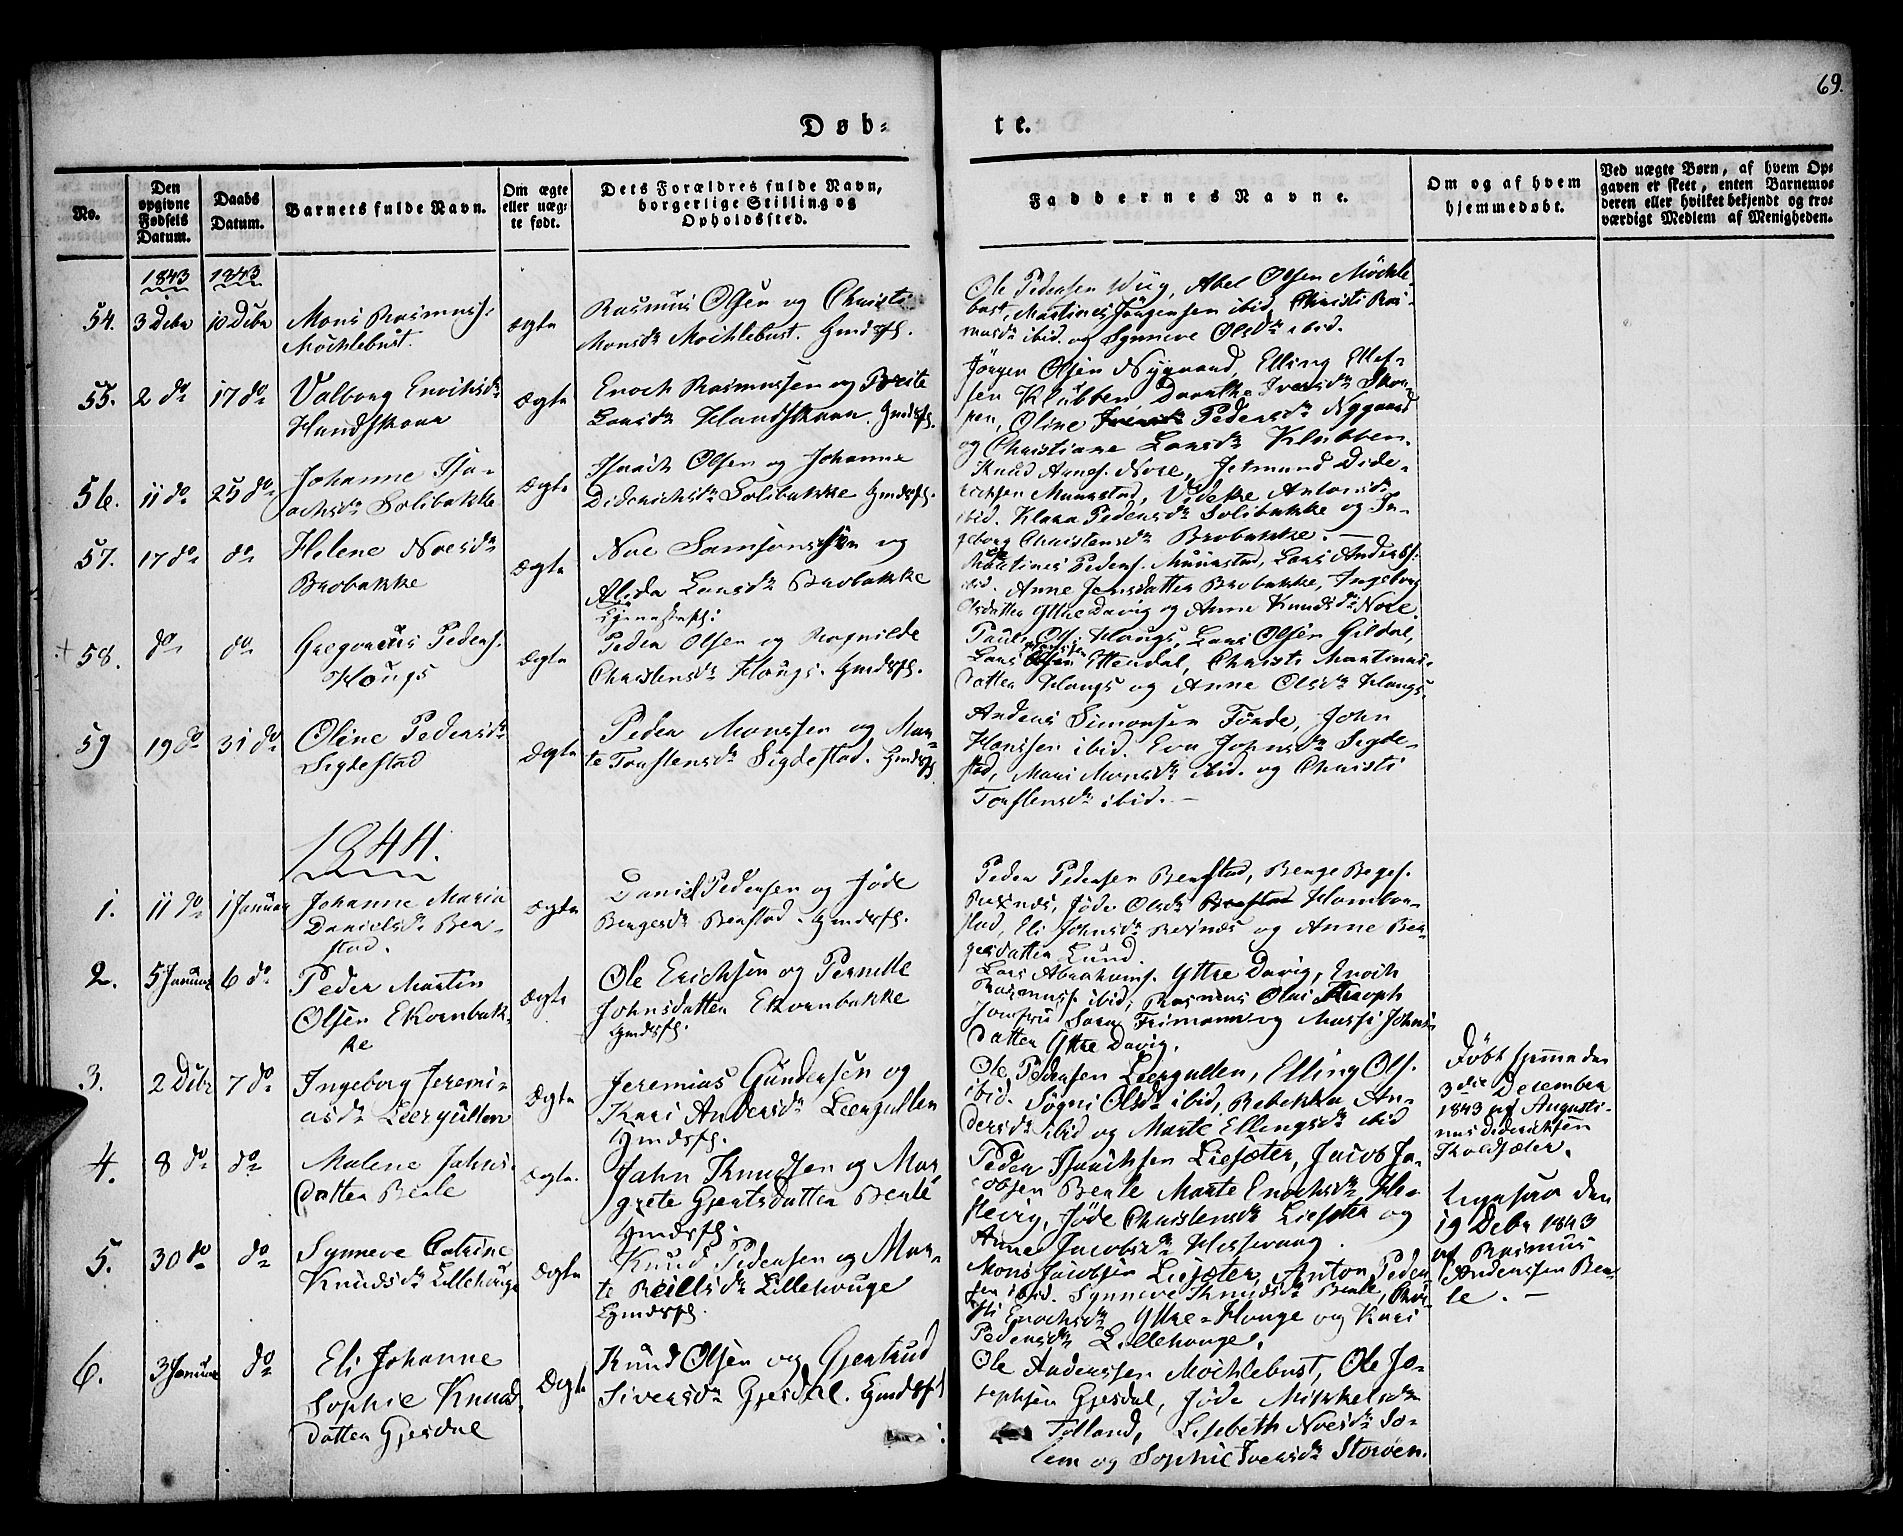 69.
Døb=
te.
No.
Den
opgivne
Fødsels
Datum.
Daabs
Datum.
Barnets fulde Navn.
Om ægte
eller uæg=
te født.
Dets Forældres fulde Navn,
borgerlige Stilling og
Opholdssted.
Faddernes Navne.
Om og af hvem
hjemmedøbt.
Ved uægte Børn, af hvem Op=
gaven er skeet, enten Barnemo=
deren eller hvilket bekjendt og tro=
værdigt Medlem af Menigheden.
1843 1843
54. 3 Debr 10 Debr
Mons Rasmuss.
Møchlebust.
Ægte
Rasmus Olsen og Christi
Monsdr Møchlebust. Gmdsfl.
Ole Pedersen Wiig, Abel Olsen Møchle=
bust, Martines Jørgensen ibid, Christi Ras=
musdr ibid. og Synneve Olsdr ibid.
55. 2 do 17 do
Valborg Enochsdr
Handskaar
Ægte
Enoch Rasmussen og Breite
Larsdr Handskaar. Gmdsfl.
Jørgen Olsen Nygaard, Elling Ellef=
sen Klubben, Dorthe Iversdr Skor=
pen, Oline Pedersdr Nygaard
og Christiane Larsdr Klubben.
56. 11 do 25 do
Johanne Isa=
achsdr Solibakke
Ægte
Isaach Olsen og Johanne
Didrichsdr Solibakke Gmdsfl.
Knud Arnes. Nore, Jetmund Dide=
richsen Maurstad, Videke Antonsdr
ibid. Klara Pedersdr Solibakke og In=
geborg Christensdr Brobakke. —
57. 17 do do
Helene Noesdr
Brobakke
Ægte
Noe Samsonssen og
Alida Larsdr Brobakke
Martines Peders. Maurstad, Lars Anderss.
ibid. Anne Jensdatter Brobakke, Ingeborg
Olsdatter Ytre Davig og Anne Knudsdr Nore.
+ 58. do do
Gregorius Peders.
Hougs
Ægte
Peder Olsen og Ragnilde
Christensdr Hougs. Gmdsfl.
Paul Ols. Hougs, Lars Olsen Gildal,
Lars Ytterdal, Christi Martinus=
datter Hougs og Anne Olsdr Hougs.
59 19 do 31 do
Oline Pedersdr
Sigdestad
Ægte
Peder Monssen og Mar=
te Torstensdr Sigdestad. Gmdsfl.
Anders Simonsen Førde, John
Hanssen ibid. Eva Johnsdr Sigde=
stad, Mari Monsdr ibid. og Christi
Torstensdr ibid. —
1844.
1. 11 do 1 Januar
Johanne Maria
Danielsdr Ber=
stad.
Ægte
Daniel Pedersen og Jøde
Bergesdr Berstad. Gmdsfl.
Peder Pedersen Berstad, Berge Berges.
Rixnæs, Jøde Olsdr Berstad Hambor=
stad, Eli Johnsdr Rexnæs og Anne Ber=
gesdatter Lund.
2. 5 Januar 6 do
Peder Martin
Olsen Ekornbak=
ke
Ægte
Ole Erichsen og Pernille
Johnsdatter Ekornbakke
Gmdsfl.
Lars Abrahams. Ytre Davig, Enoch
Rasmuss. ibid, Rasmus Olai
Jomfru Sara Frimann og Massi Johns=
datter Ytre Davig.
3. 2 Debr 7 do
Ingeborg Jeremi=
asdr Leergullen
Ægte
Jeremias Gundersen og
Kari Andersdr Leergullen
Gmdsfl.
Ole Pedersen Leergullen, Elling Ols.
ibid. Søgni Olsdr ibid, Rebekka An=
dersdr ibid og Marte Ellingsdr ibid
Døbt hjemme den
3die December
1843 af Augusti=
nus Diderichsen
Koldsæter.
4. 8 do do
Malene Johns=
datter Berle
Ægte.
John Knudsen og Mar=
grete Gjertsdatter Berle
Gmdsfl.
Peder Isaichsen Liesæter, Jacob Ja=
cobsen Berle Marte Enochsdr He=
stevig, Jøde Christensdr Liesæter og
Anne Jacobsdr Hessevaag.
Ligesaa den
19 Debr 1843
af Rasmus
Anderssen Ber=
le. —
5. 30 do do
Synneve Catrine
Knudsdr Lillehouge
Ægte
Knud Pedersen og Mar=
te Reillsdr Lillehouge
Gmdsfl.
Mons Jacobsen Liesæter, Anton Peder=
sen ibid. Synneve Knudsdr Berle, Chri=
sti Enochsdr Ytre=Houge og Kari
Pedersdr Lillehouge.
6. 3 Januar do
Eli Johanne
Sophie Knuds=
datter Gjesdal
Ægte
Knud Olsen og Gjertrud
Siversdr Gjesdal. Gmdsfl
Ole Anderssen Møchlebust, Ole Jo=
sephsen Gjesdal, Jøde Mikkelsdr
Totland, Lisebeth Noesdr So=
lem og Sophie Iversdr Storøen.